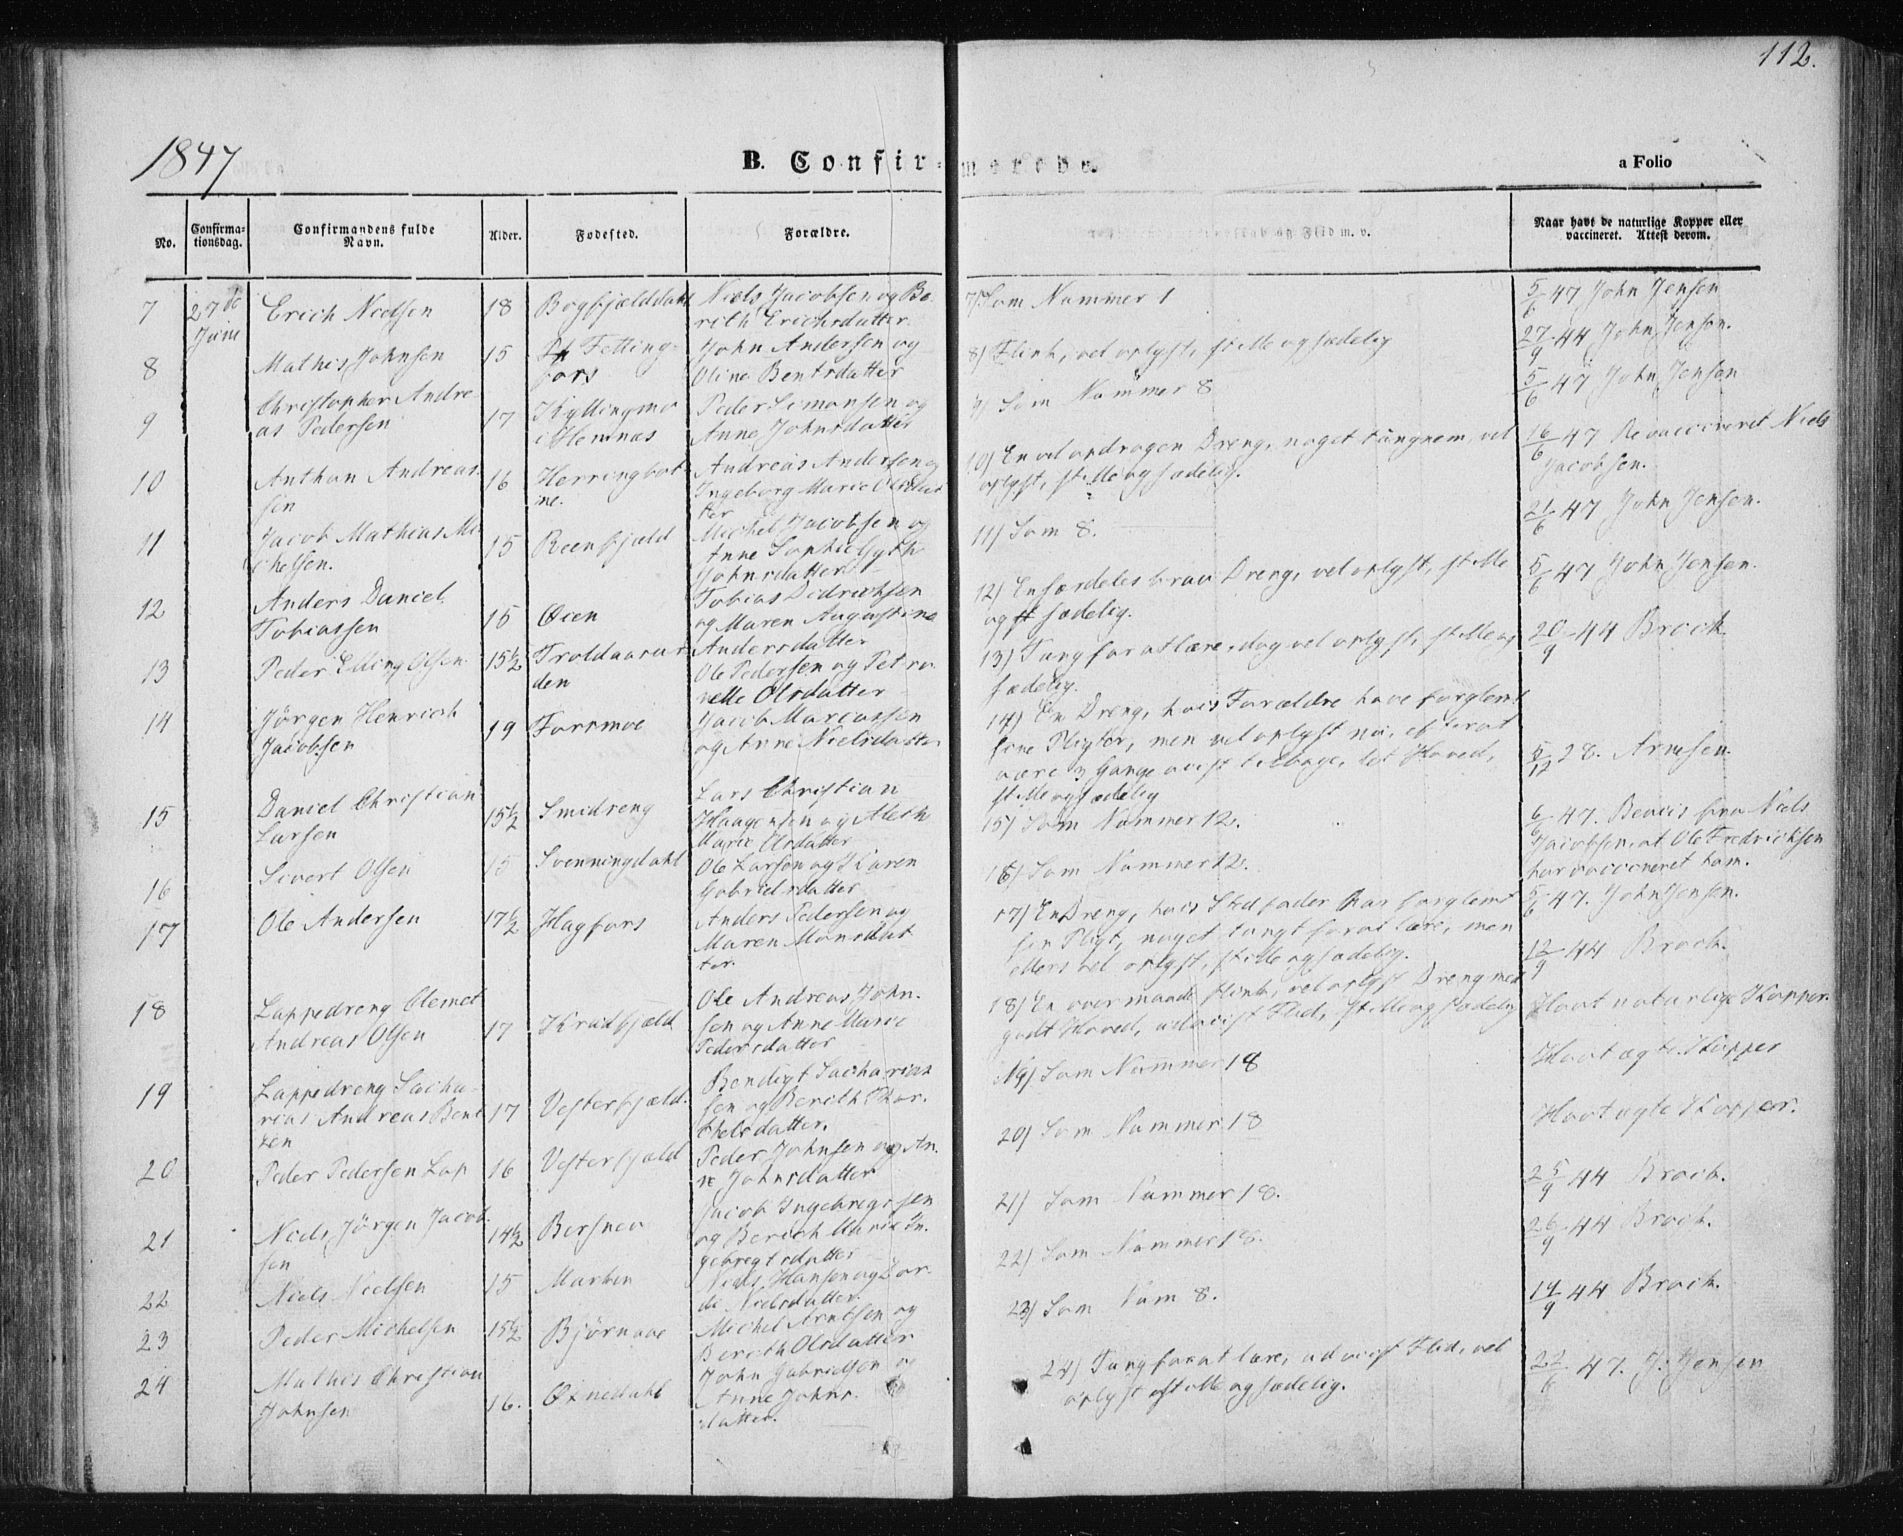 112.
1847
B. Confir-merede.
a Folio
No.
Confirma-
tionsdag.
Confirmandens fulde
Navn.
Alder.
Fødested.
Forældre.
Flid m. v.
Naar havt de naturlige Kopper eller
vaccineret. Attest derom.
7 27de Erich Nielsen 18 Bogfjelddahl Niels Jacobsen og Be-
Juni rith Erichsdatter
7) Som Nummer 1
5/6 47 John Jensen
8 Mathis Johnsen 15 Fetting- John Andersen og
fors Oline Bentsdatter
8) Flink, vel oplyst, stille og sædelig
27/9 44 John Jensen.
9 Christopher Andre- 17 Kyllingmo Peder Simonsen og
as Pedersen i Hemnæs Anne Johnsdatter
9) Som Nummer 8
5/6 47 John Jensen
10 Anthon Andreas- 16 Herringbot- Andreas Andersen og
sen ne. Ingeborg Marie Olsdat-
ter
10) En vel opdragen Dreng, noget tungnem, vel
oplyst, stille og sædelig.
16/6 47 Revaccineret Niels
Jacobsen.
11 Jacob Mathias Mi- 15 Reenfjeld Michel Jacobsen og
chelsen. Anne Sophie Gyth
Johnsdatter
11) Som 8.
21/6 47 John Jensen.
12 Anders Daniel 15 Øien Tobias Didriksen
Tobiassen og Maren Augustine
Andersdatter
12) En særdeles brav Dreng, vel oplyst, stille
og sædelig.
5/6 47 John Jensen.
13 Peder Elling Olsen 15½ Troldaasen Ole Pedersen og Petro-
den nelle Olsdatter
13) Tung for at lære, dog vel oplyst, stille og
sædelig.
20/9 44 Brock
14 Jörgen Henrich 19 Forsmoe Jacob Marcussen
Jacobsen og Anne Nielsdatter
14) En Dreng, hvis Forældre have forglemt
sine Pligter, men vel oplyst nu, efter at
være 3 Gange avist tilbage, let Hoved,
stille og sædelig
5/12 28. Arnesen
15 Daniel Christian 15½ Smidreng Lars Christian
Larsen Haagensen og Aleth
Marie Olsdatter
15) Som Nummer 12.
6/6 47. Beviis fra Niels
Jacobsen, at Ole Fredricksen
har vaccineret ham.
16 Sivert Olsen 15 Svenningdahl Ole Larsen og Karen
Gabrielsdatter
16) Som Nummer 12.
5/6 47. John Jensen.
17 Ole Andersen 17½ Hagfors Anders Pedersen og
Maren Monsdat-
ter.
17) En Dreng, hvis Stedfader har forglemt
sin Pligt, noget tungt for at lære, men
ellers vel oplyst, stille og sædelig.
12/9 44 Brock.
18 Lappedreng Clemet 17 Krudfjeld Ole Andreas John-
Andreas Olsen sen og Anne Marie
Pedersdatter
18) En overmaade flink, vel oplyst Dreng med
godt Hoved, udviist Flid, stille og sædelig
Havt naturlige Kopper.
19 Lappedreng Sacha- 17 Vesterfjeld. Bendigt Sacharias-
rias Andreas Bent- sen og Berith Thor-
zen chelsdatter.
19) Som Nummer 18
Havt ægte Kopper
20 Peder Pedersen Lap 16 Vesterfjeld Peder Johnsen og An-
ne Johnsdatter
20) Som Nummer 18
Havt ægte Kopper.
21 Niels Jörgen Jacob- 14½ Bersnev Jacob Ingebregtsen
sen og Berith Marie In-
gebregtsdatter
21) Som Nummer 18.
25/9 44 Brock.
22 Niels Nielsen 15 Marken Niels Hansen og Dor-
de Nielsdatter
22) Som Nummer 18.
26/9 44 Brock.
23 Peder Michelsen 15½ Björnaae Michel Arntsen og
Berith Olsdatter
23) Som Num 8.
14/9 44 Brock.
24 Mathis Christian 16. Øxnedahl John Gabrielsen og
Johnsen Anne Johns-
datter.
24) Tung for at lære, udviist Flid, vel
oplyst stille og sædelig.
22/6 47. J. Jensen